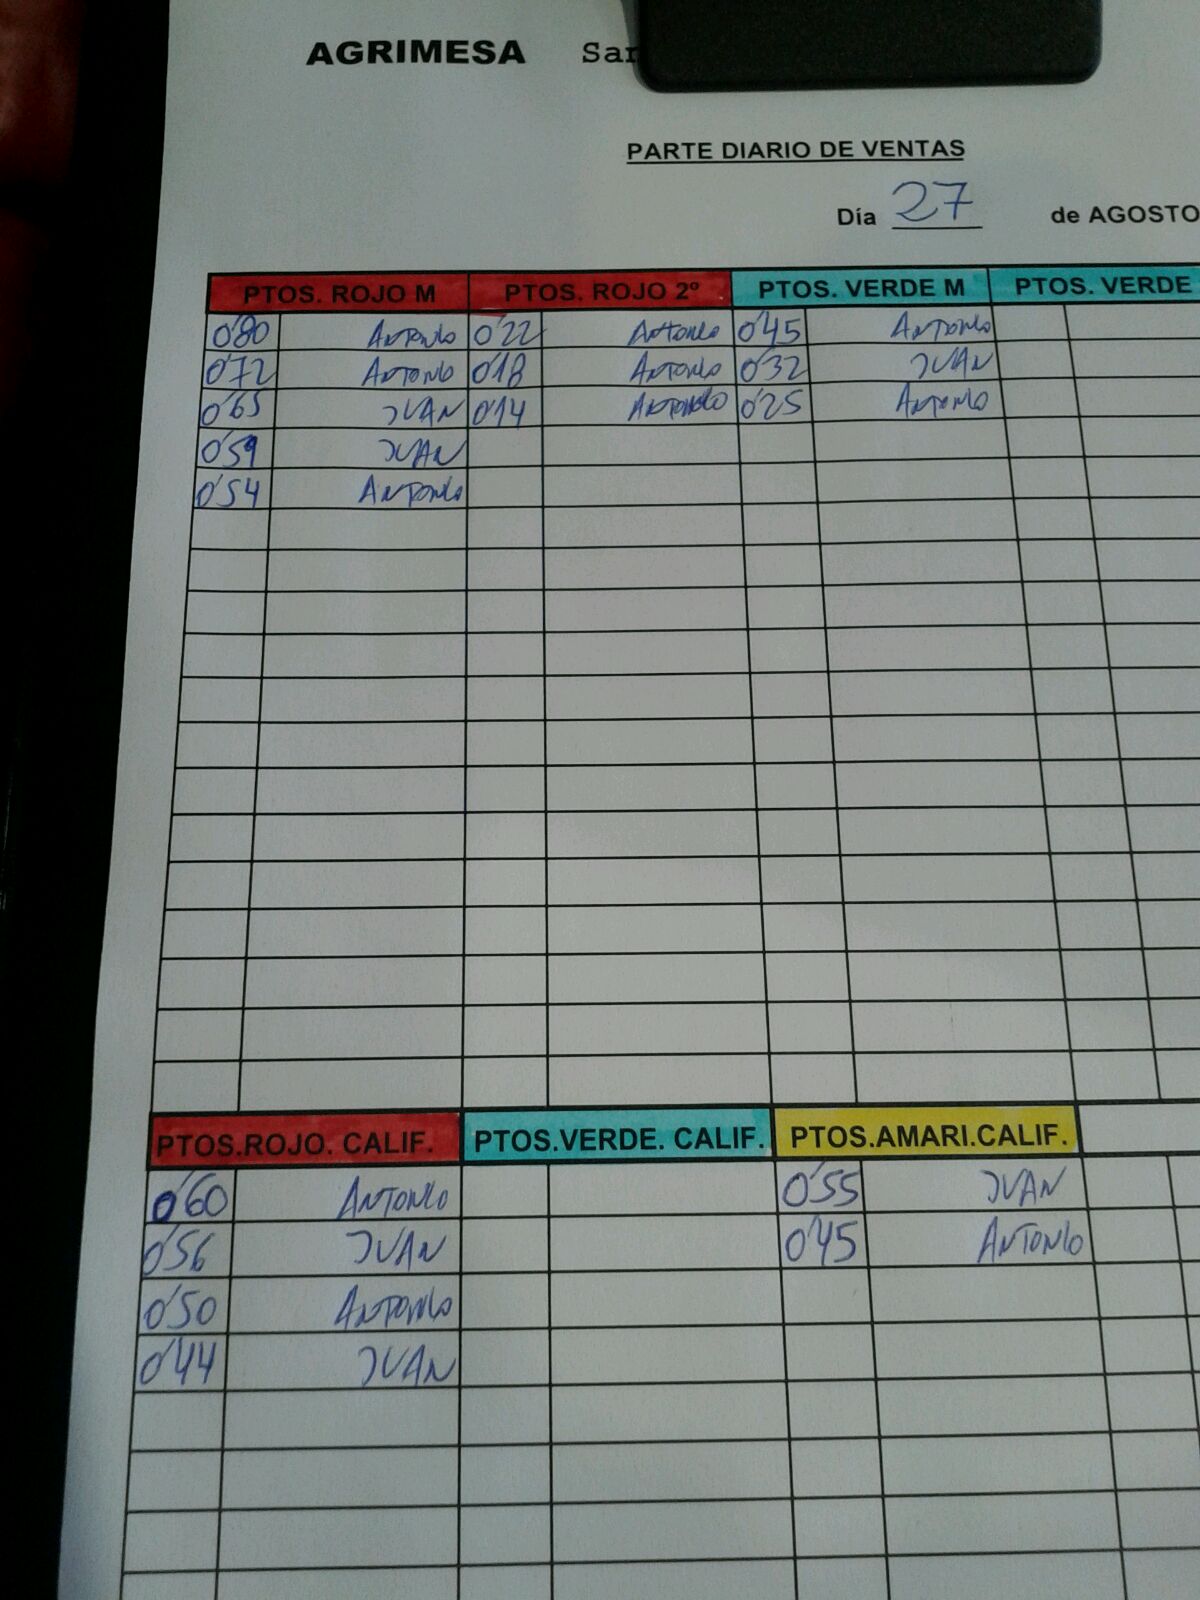 AGRIMESA
PARTE DIARIO DE VENTAS
Día 27 de AGOSTO
PTOS. ROJO M PTOS. ROJO 2º PTOS. VERDE M PTOS. VERDE
0'80 ANTONIO 0'22 ANTONIO 0'45 ANTONIO
0'72 ANTONIO 0'18 ANTONIO 0'32 JUAN
0'65 JUAN 0'14 ANTONIO 0'25 ANTONIO
0'59 JUAN
0'54 ANTONIO
PTOS.ROJO. CALIF. PTOS.VERDE. CALIF. PTOS.AMARI.CALIF.
0'60 ANTONIO 0'55 JUAN
0'56 JUAN 0'45 ANTONIO
0'50 ANTONIO
0'44 JUAN